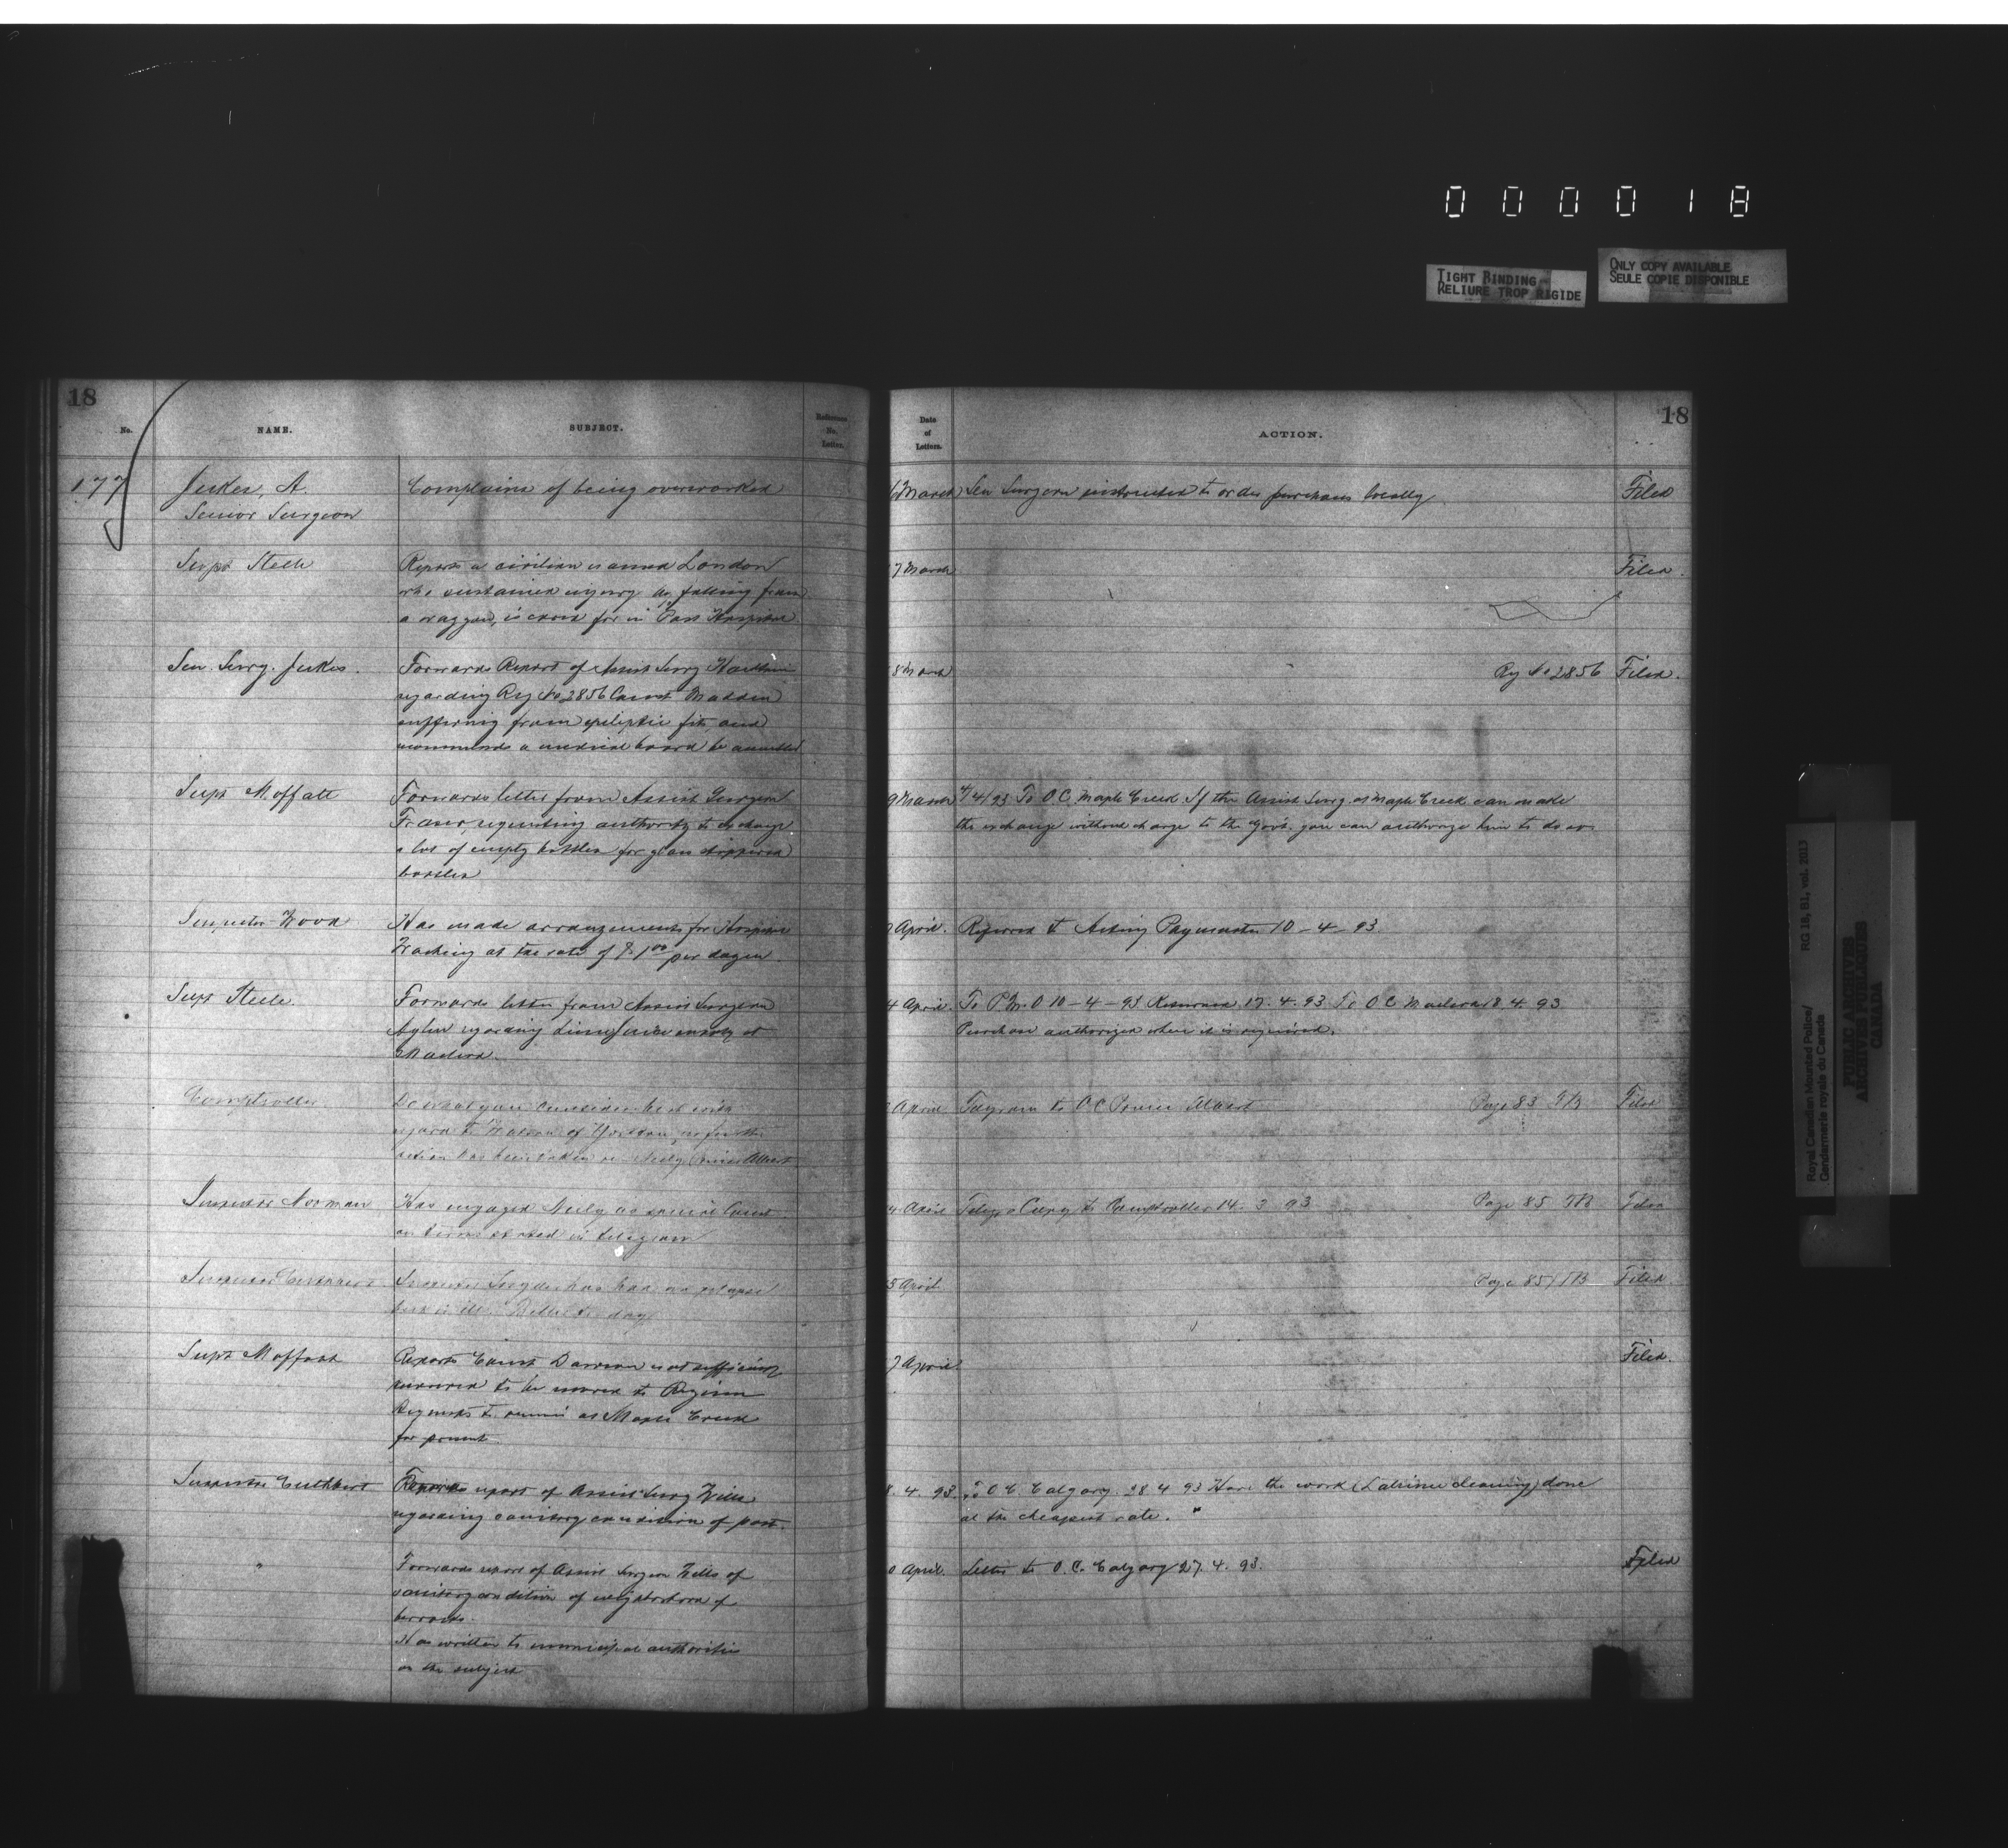 0 0 0 0 1 8
TIGHT BINDING
RELIURE TROP RIGIDE
ONLY COPY AVAILABLE
SEULE COPIE DISPONIBLE
18
No.
NAME.
SUBJECT.
Reference
No.
Letter.
177
Jukes, A.
Senior Surgeon
Complains of being overworked
Supt Steele
Reports a civilian named London
who sustained injury by falling from
a waggon, is cared for in Post Hospital
Sen. Surg. Jukes.
Forwards Report of Assist Surg
regarding Reg No 2856 Const Madden
suffering from epileptic fits and
recommends a medical board be assembled
Supt Moffatt
Forwards letter from Assist Surgeon
Fraser, requesting authority to exchange
a lot of empty bottles for glass stoppered
bottles
Inspector Wood
Has made arrangements for Hospital
Washing at the rate of $1.00 per dozen.
Supt Steele.
Forwards letter from Assist Surgeon
Aylen regarding lime juice supply at
Macleod.
Comptroller
Do what you consider best with
regard to Watson of Yorkton, no further
action has been taken re Neely Prince Albert
Inspector Norman
Has engaged Neely as special Const
on terms stated in telegram
Inspector Cuthbert
Inspector Snyder has had a relapse
Better to day
Supt Moffatt
Reports Const Dawson not sufficiently
recovered to be moved to Regina
Requests to remain at Maple Creek
for present
Inspector Cuthbert
Forwards report of Assist Surg Wills
regarding sanitary condition of post.
"
Forwards report of Assist Surgeon Wills of
sanitary condition of neighborhood of
barracks.
Has written to municipal authorities
on the subject
Date
of
Letters.
ACTION.
18
6 March Sen Surgeon instructed to order purchases locally Filed
7 March Filed.
8 March Reg No 2856 Filed.
9 March 4/4/93 To O C Maple Creek If the Assist Surg at Maple Creek can make
the exchange without charge to the Govt. you can authorize him to do so
April. Referred to Acting Paymaster 10-4-93.
4 April. To P.M.O 10-4-93 Returned 17.4.93 To O C Macleod 18.4.93
Purchase authorized when it is required.
April Telegram to O C Prince Albert Page 83 TB Filed
April Telegr Copy to Comptroller 14. 3 93 Page 85 TB Filed
5 April Page 85 TB Filed
7 April Filed.
8. 4. 93. To O C Calgary. 28 4 93 Have the work (Latrine cleaning) done
at the cheapest rate.
0 April. Letter to O. C. Calgary 27. 4. 93. Filed
Royal Canadian Mounted Police/
Gendarmerie royale du Canada
RG 18, B1, vol. 2013
PUBLIC ARCHIVES
ARCHIVES PUBLIQUES
CANADA